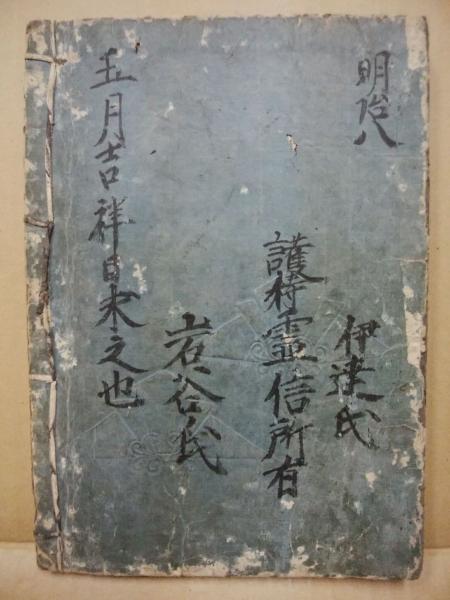 明治八
伊達氏
護持霊信所有
岩谷氏
五月吉祥日求之也